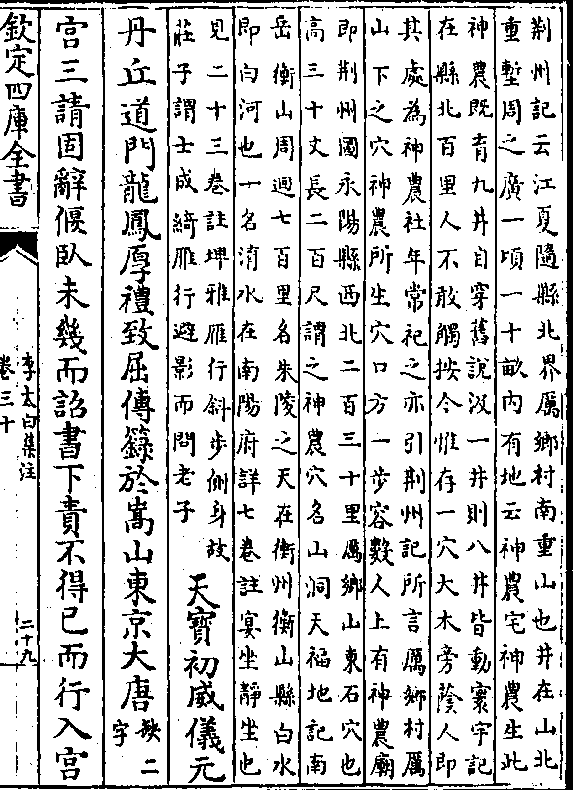 荆州記云江夏隨縣北界厲鄉村南重山也井在山北
重塹周之廣一頃一十畝内有地云神農宅神農生此
神農既育九井自穿舊說汲一井則八井皆動寰宇記
在縣北百里人不敢觸按今惟存一穴大木旁蔭人即
其處為神農社年常祀之亦引荆州記所言厲鄉村厲
山下之穴神農所生穴口方一步容數人上有神農廟
即荆州圖永陽縣西北二百三十里厲鄉山東石穴也
高三十丈長二百尺謂之神農穴名山洞天福地記南
岳衡山周迴七百里名朱陵之天在衡州衡山縣白水
即白河也一名淯水在南陽府詳七卷註宴坐靜坐也
見二十三卷註埤雅雁行斜步側身故
莊子謂士成綺雁行避影而問老子
天寶初威儀元
丹丘道門龍鳳厚禮致屈傳籙於嵩山東京大唐缺二
字
宫三請固辭偃臥未幾而詔書下責不得已而行入宫
欽定四庫全書
李太白集注
卷三十
二十九